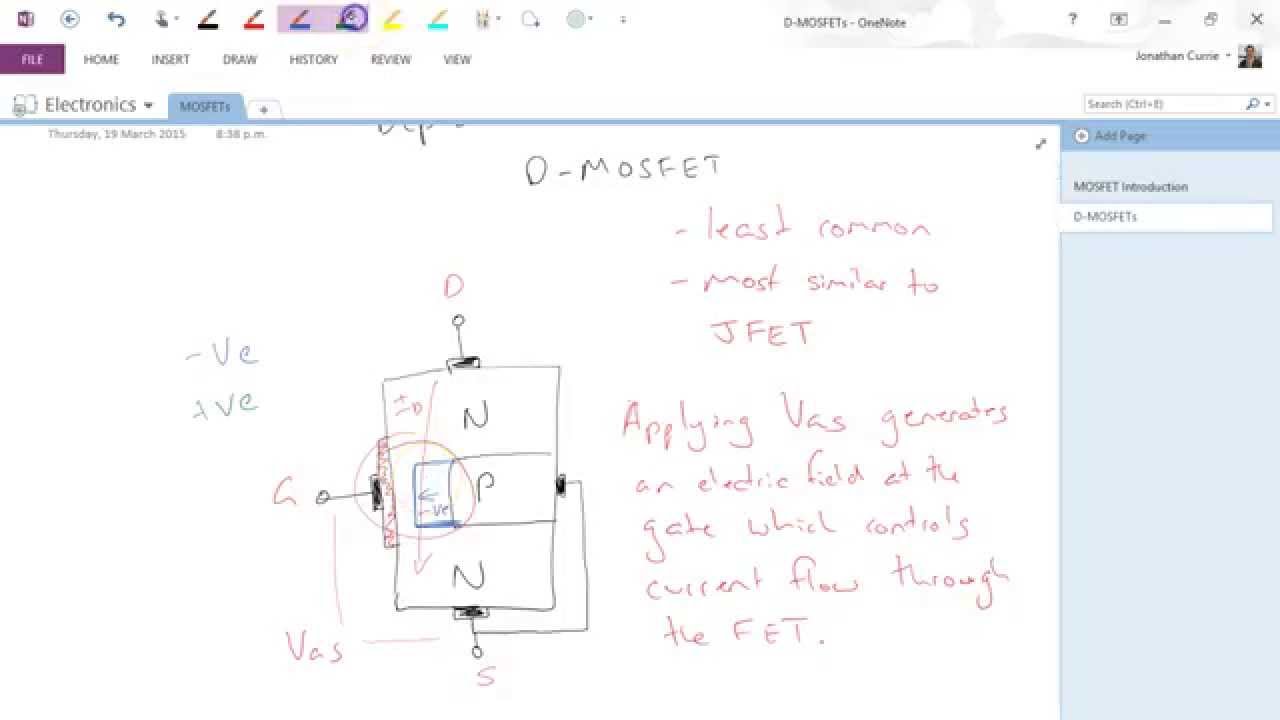 D-MOSFETs - OneNote
?
FILE HOME INSERT DRAW HISTORY REVIEW VIEW
Jonathan Currie
Electronics
MOSFETs
+
Search (Ctrl+E)
Thursday, 19 March 2015 8:38 p.m.
Add Page
MOSFET Introduction
D-MOSFETs
D-MOSFET
- least common
- most similar to
JFET
D
-Ve
+ve
ID
N
G
P
-ve
N
VGS
S
Applying VGS generates
an electric field at the
gate which controls
current flow through
the FET.